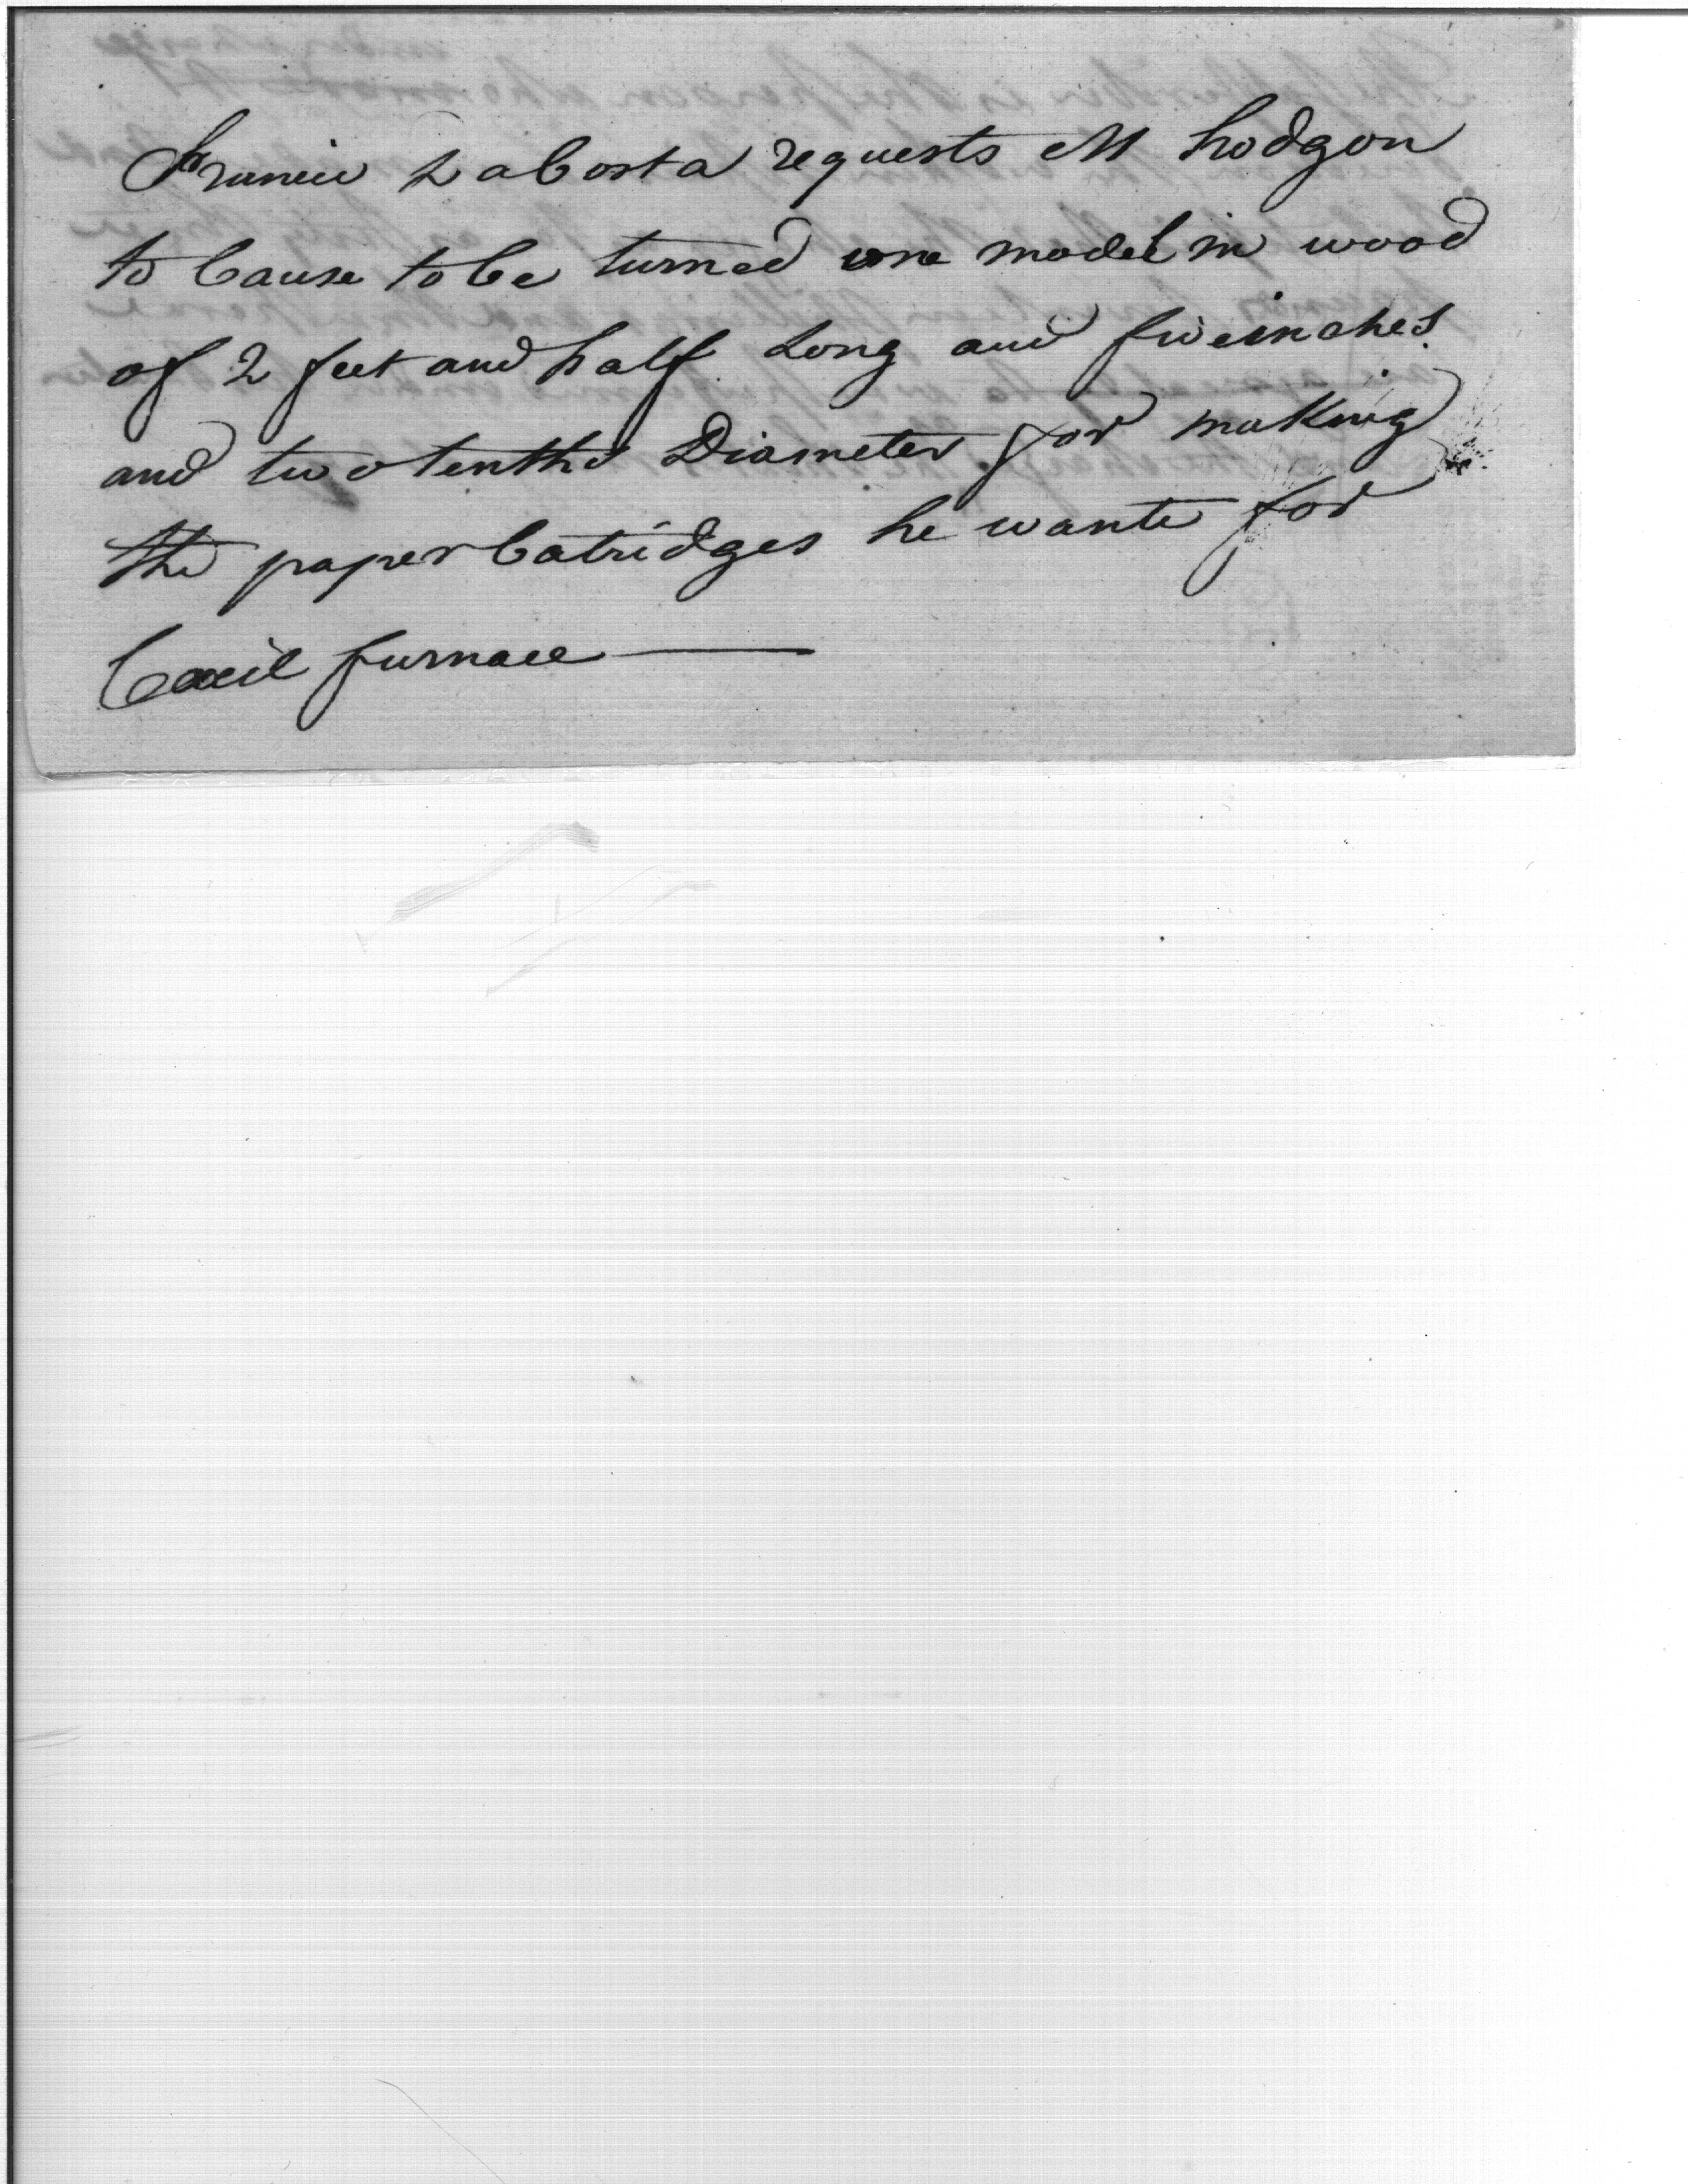 Francis Dacosta requests M hodgon
to Cause to be turned one model in wood
of 2 feet and half Long and five inches
and two tenths Diameter for making
the paper Catridges he wants for
Cecil furnace